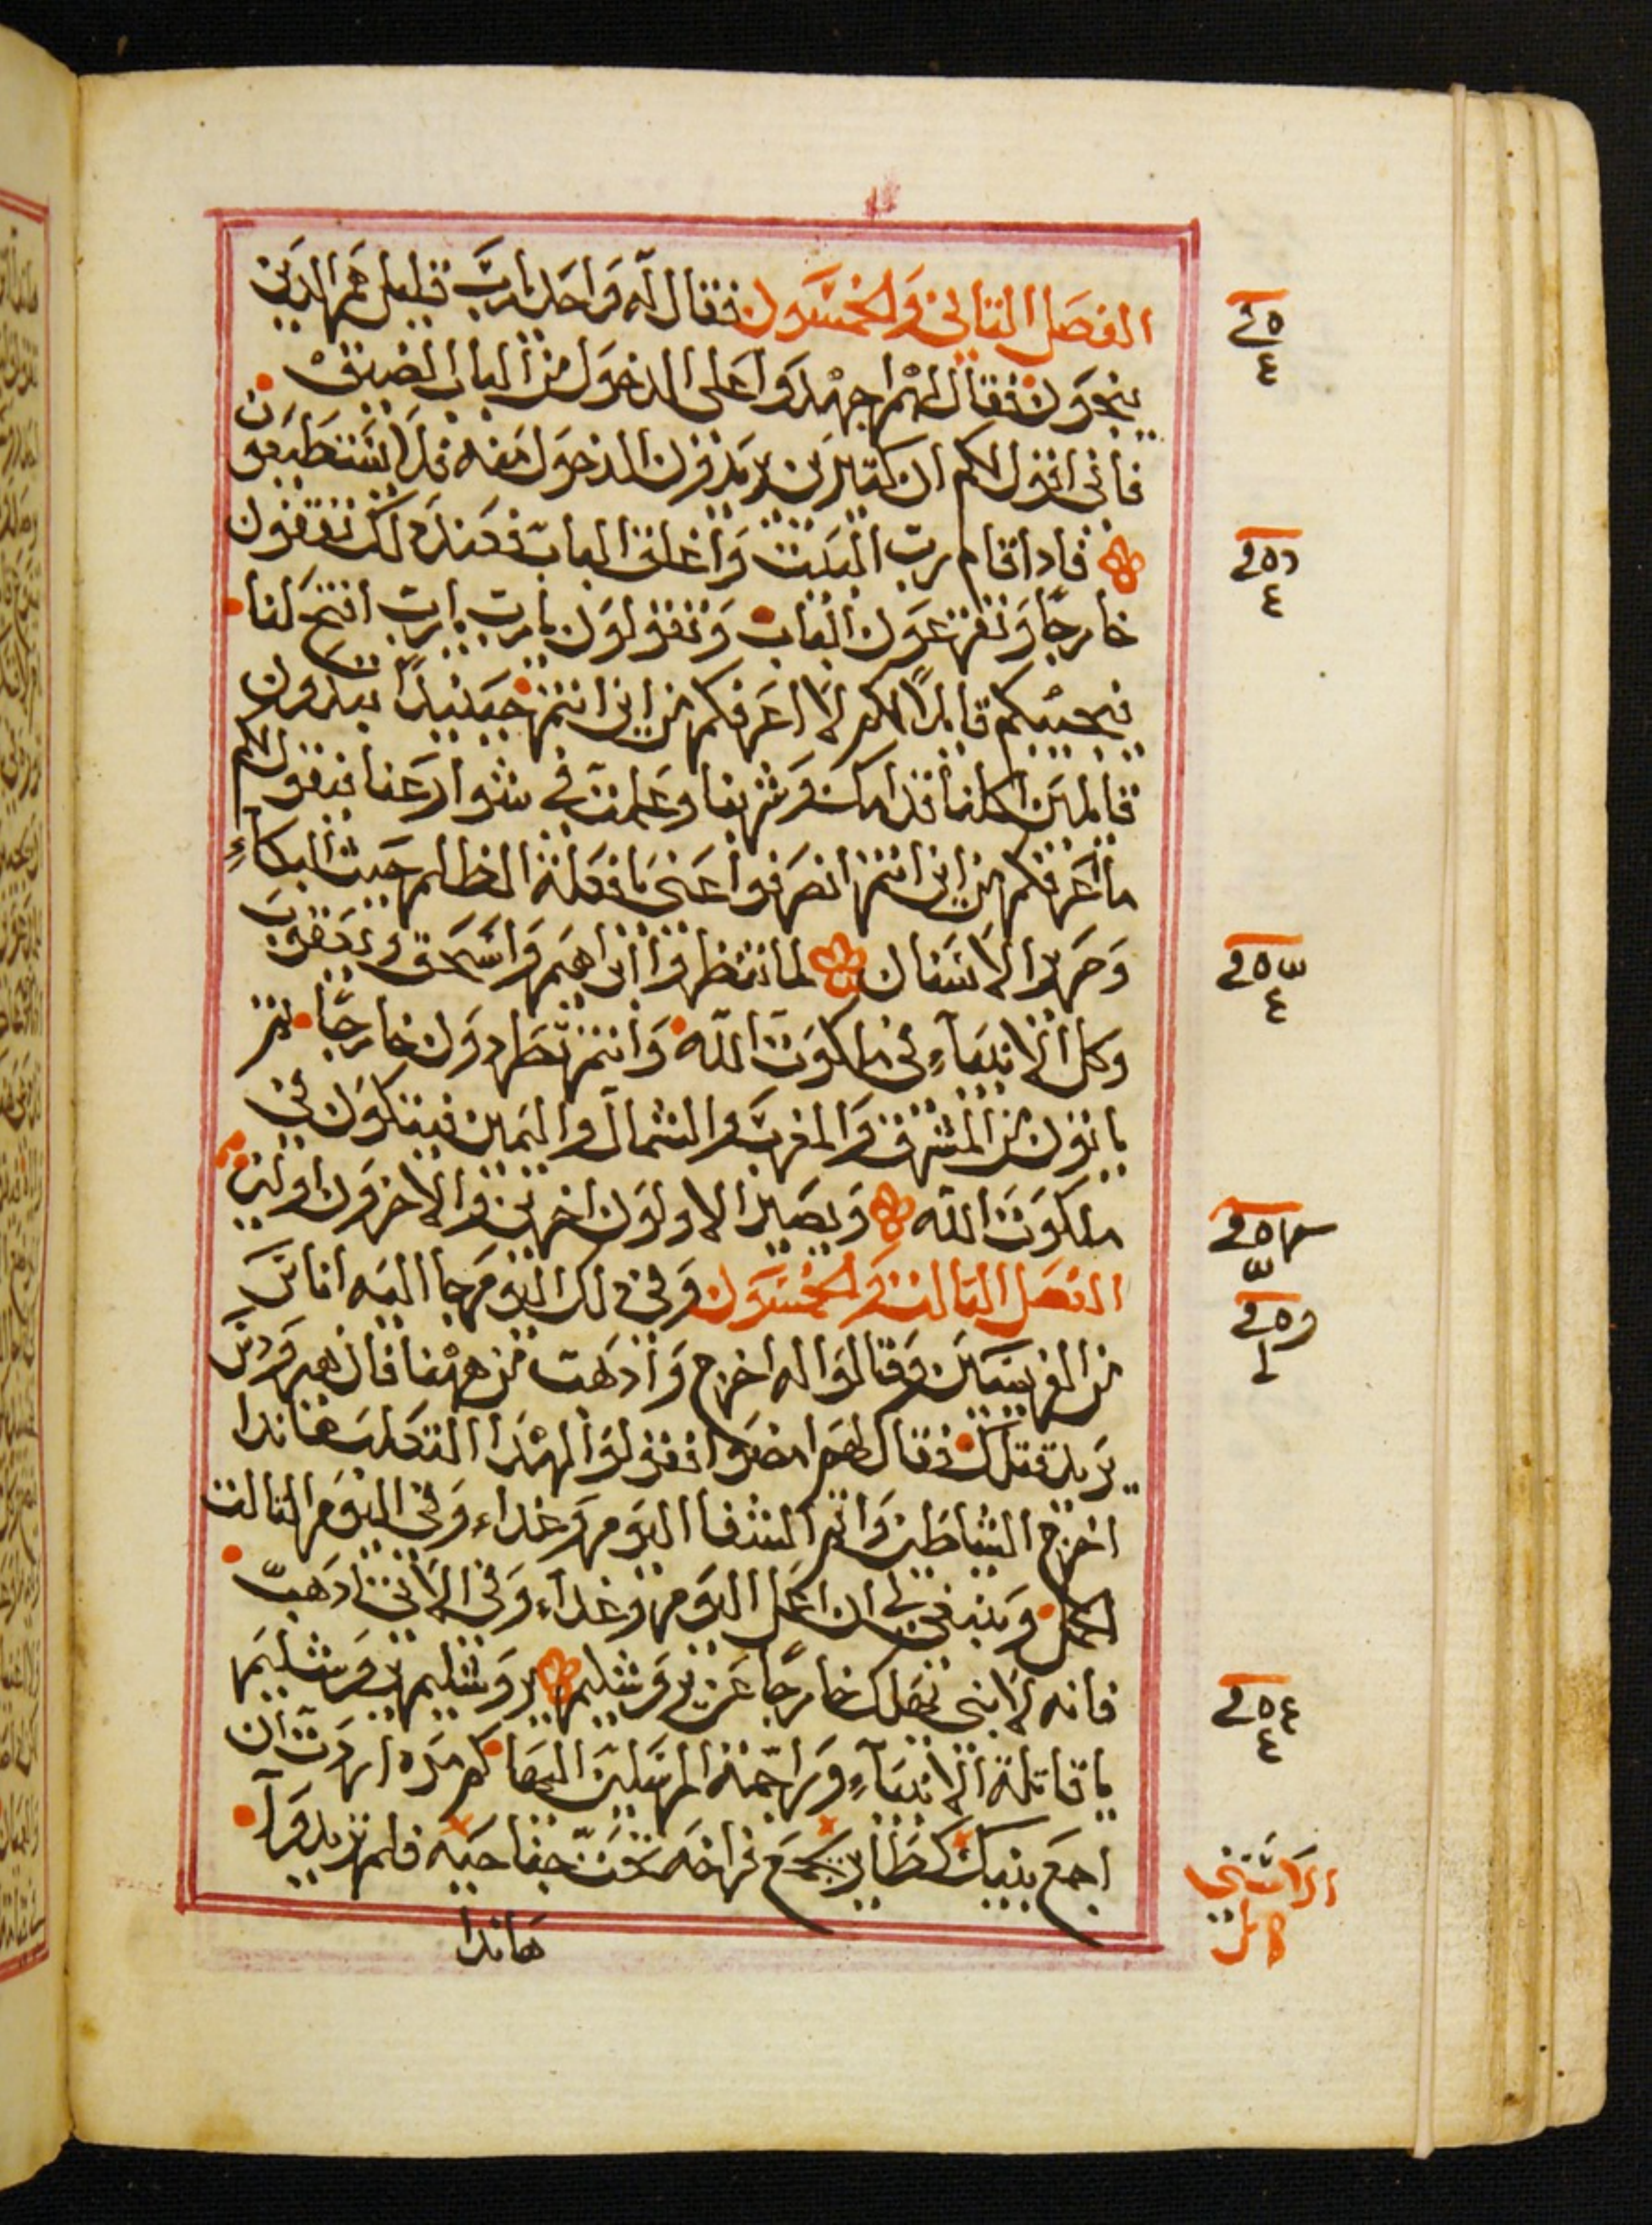 الفصل التاني والخمسون فقال له واحد يارب قليل هم الدين
ينجون فقال لهم اجهدوا على الدخول من الباب الضيق
فأني اقول لكم ان كتيرين يريدون الدخول منه فلا يستطيعون
فادا قام رب البيت واغلق الباب فعند دلك تقفون
خارجًا وتقرعون الباب وتقولون يارب يارب افتح لنا
فيجيبكم قايلًا لكم لا اعرفكم من اين انتم حينيدًا تبدون
قايلين اكلنا قدامك وشربنا وعلمت في شوارعنا فيقول لكم
ما اعرفكم من اين انتم انصرفوا عني يا فعلة الظلم حيث البكاءِ
وصرير الاسنان لما تنظروا ابراهيم واسحق ويعقوب
وكل الانبياءِ في ملكوت الله وانتم تطردون خارجًا تم
ياتون من المشرق والمغرب والشمال واليمين فيتكون في
ملكوت الله ويصير الاولون اخرين والاخرون اولين
الفصل التالت والخمسون وفي دلك اليوم جا اليه اناس
من الفريسيين وقالوا له اخرج وادهب من ههنا فان هيرودس
يريد قتلك فقال لهم امضوا فقولوا لهدا التعلب هاندا
اخرج الشياطين واتم الشفا اليوم وغداء وفي اليوم التالت
اكمل وينبغي لي ان اعمل اليوم وغداء وفي الاتي ادهب
فانه لا ينبي يهلك خارجًا عن يروشليم يروشليم يروشليم
يا قاتلة الانبياءِ وراجمة المرسلين اليها كم مره اردت ان
اجمع بنيك كطاير يجمع فراخه تحت جناحيه فلم تريدوا
هاندا